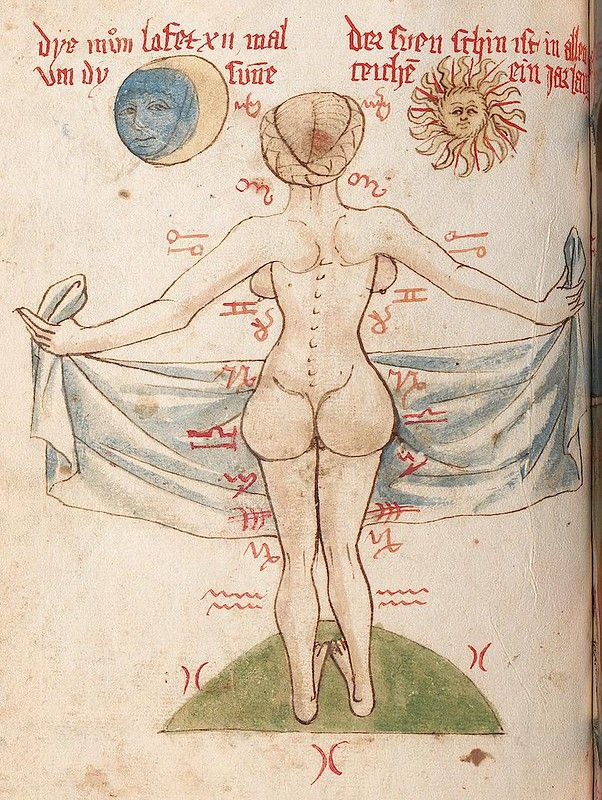 dye mon lofet xii mal
vm dy suñe
der suen schin ist in allen
ceichē ein jar lang